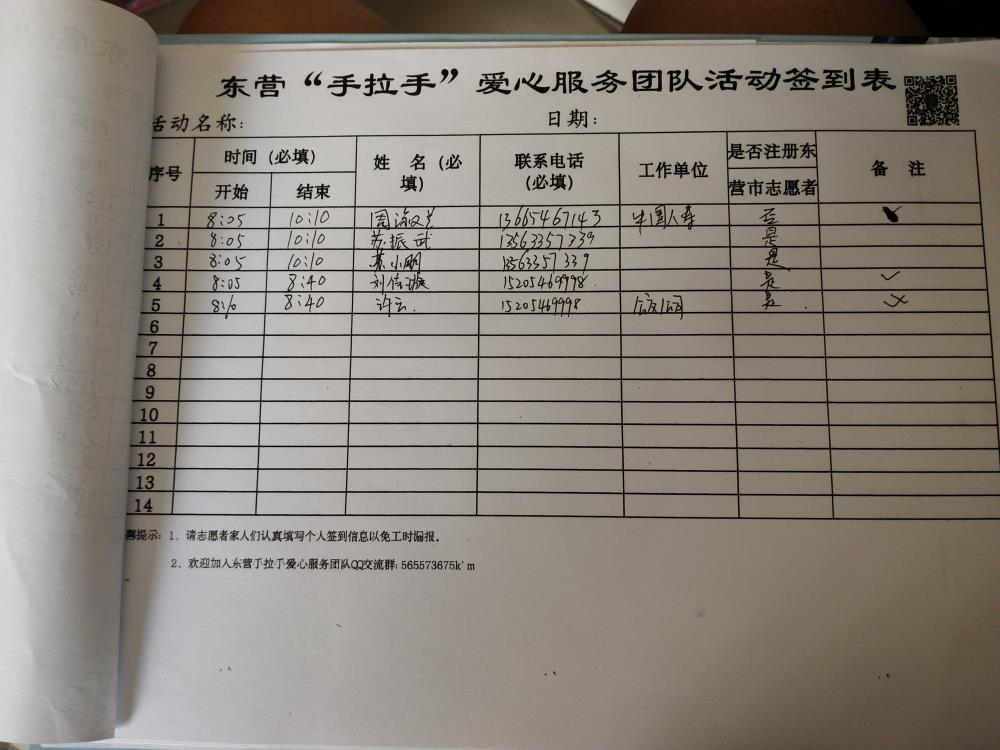 东营“手拉手”爱心服务团队活动签到表
活动名称: 日期:
序号 时间（必填） 姓 名（必填） 联系电话（必填） 工作单位 是否注册东营市志愿者 备 注
开始 结束
1 8:05 10:10 13665467143 中国人寿 否
2 8:05 10:10 苏振武 13563357339 是
3 8:05 10:10 苏小明 13563357339 是
4 8:05 8:40 刘倍璇 15205469998 是 ✓
5 8:10 8:40 许云 15205469998 是
6
7
8
9
10
11
12
13
14
提示: 1、请志愿者家人们认真填写个人签到信息以免工时漏报。
2、欢迎加入东营手拉手爱心服务团队QQ交流群: 565573675k'm